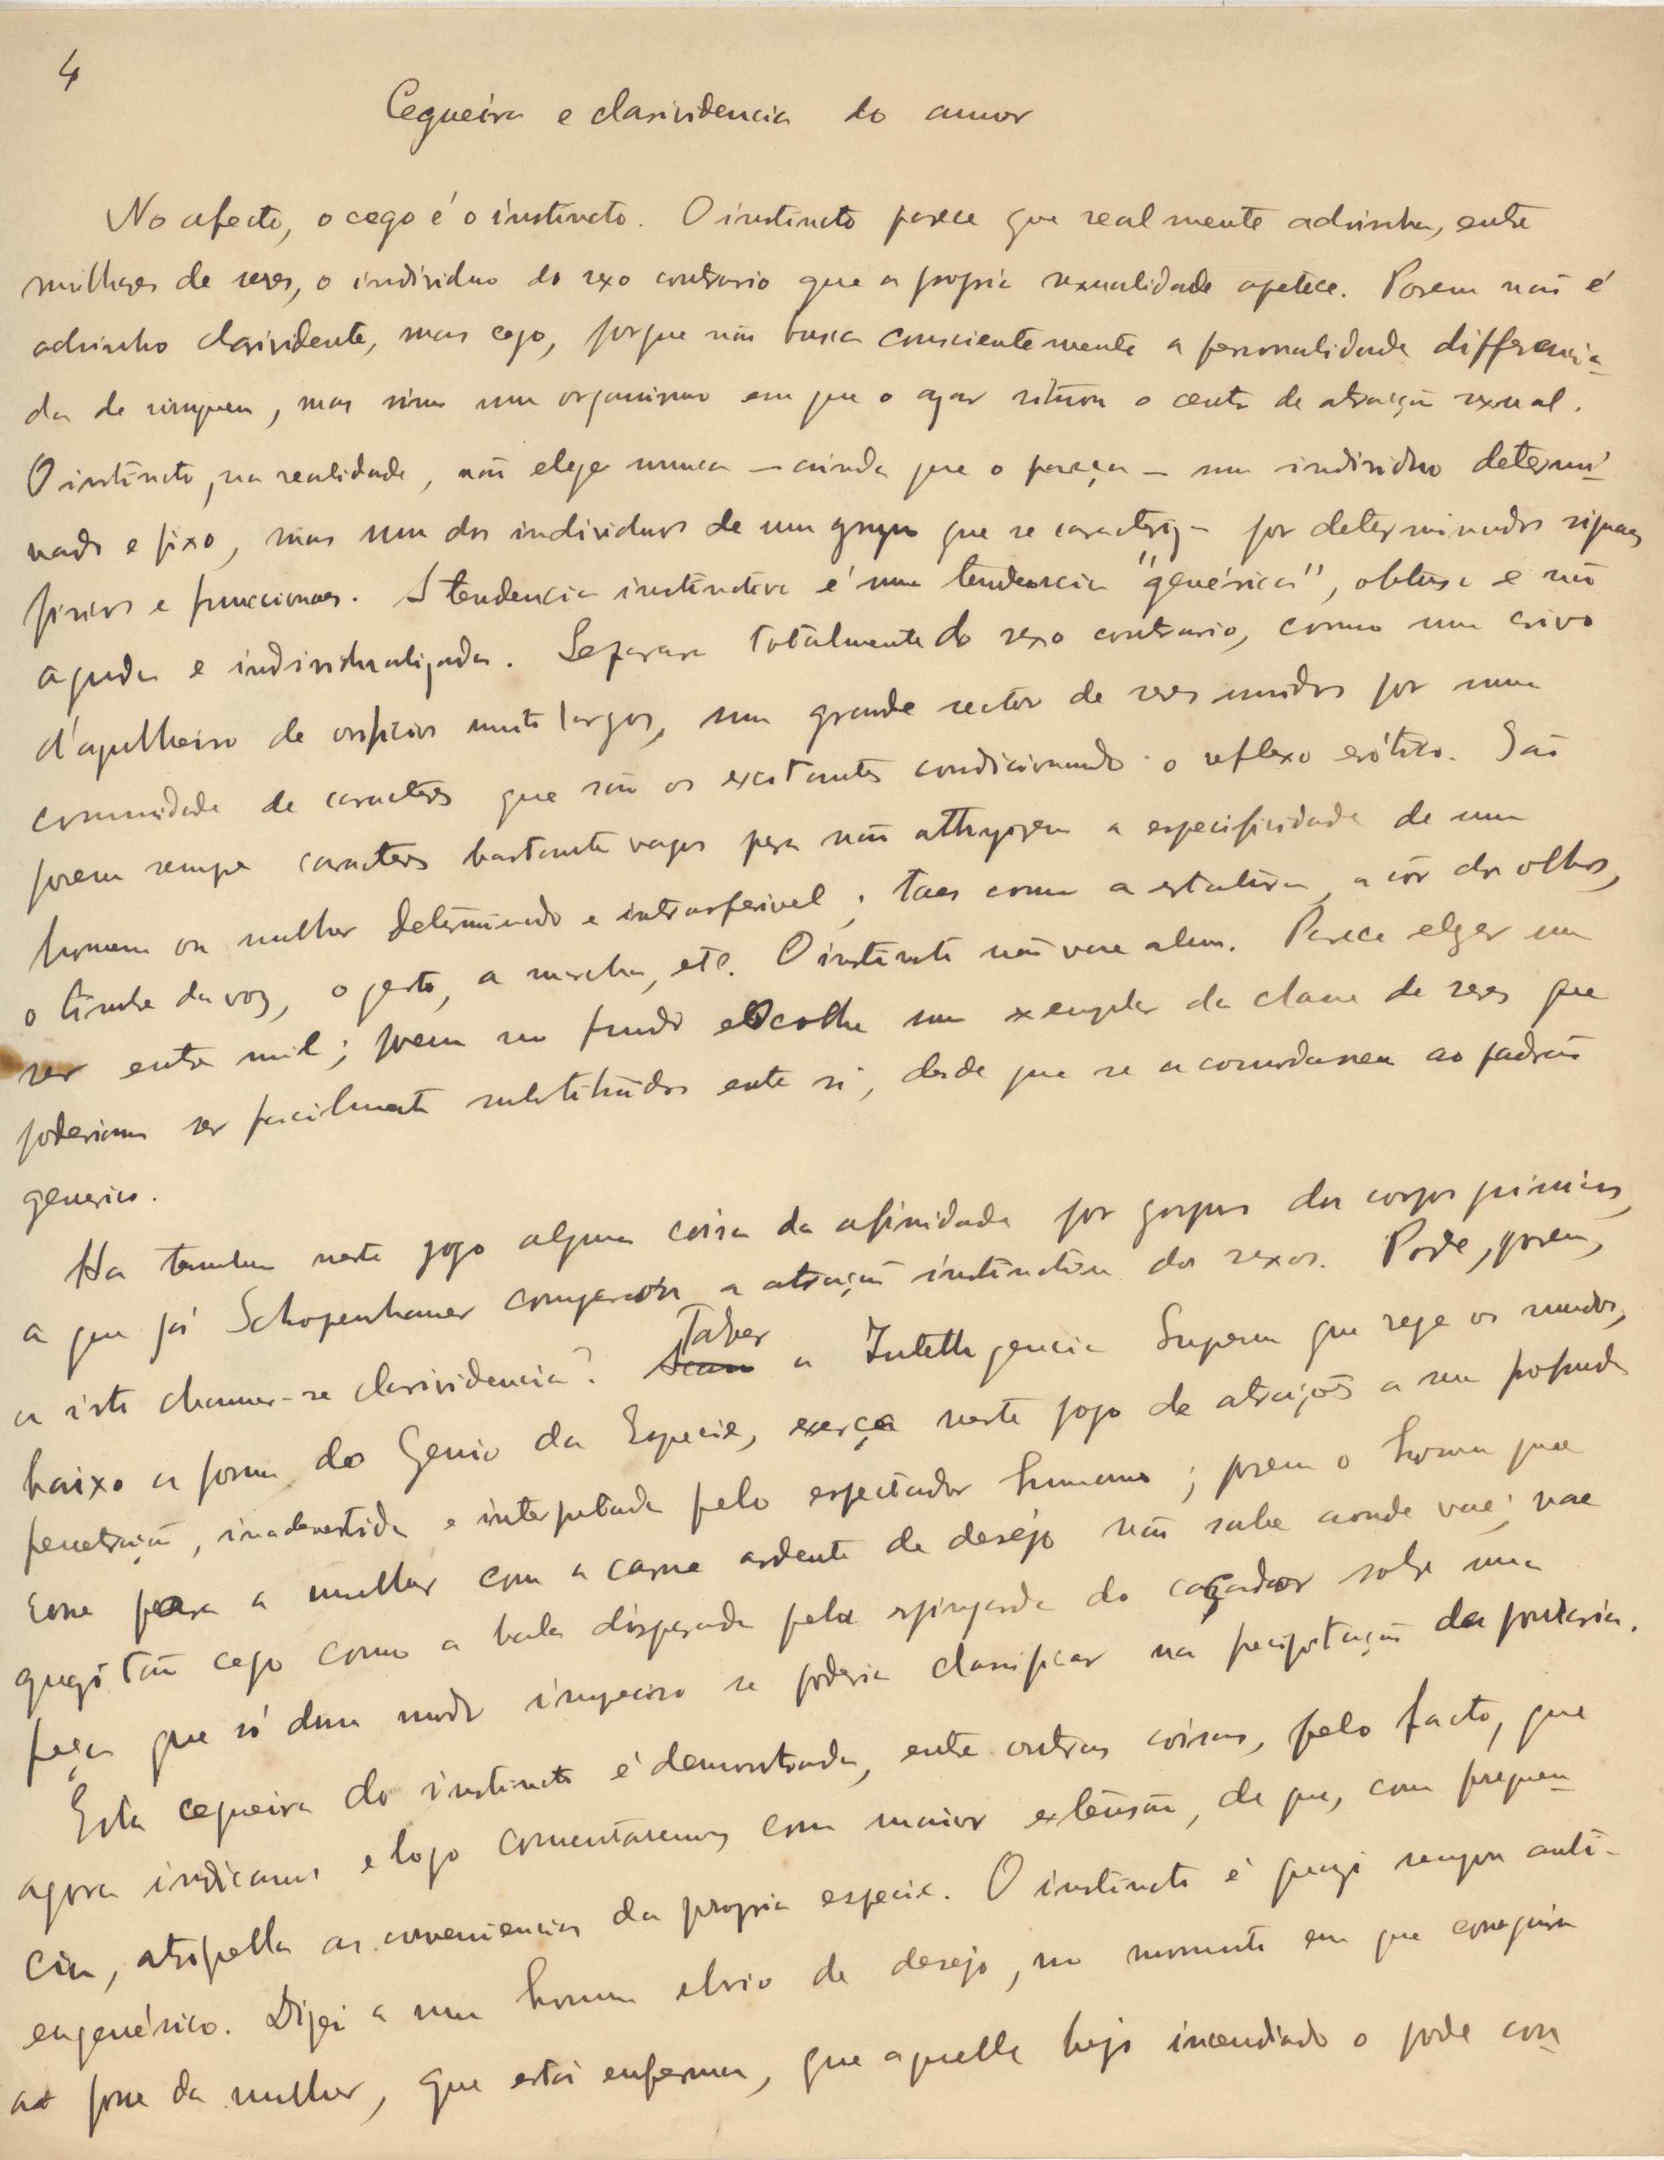 4
Cegueira e clarividencia do amor
No afecto, o cego é o instincto. O instincto parece que realmente adivinha, entre
milhares de seres, o individuo do sexo contrario que a propria sexualidade apetece. Porem não é
adivinho clarividente, mas cego, porque não busca conscientemente a personalidade differencia-
da de ninguem, mas sim um organismo em que o azar situou o centro de atração sexual.
O instincto, na realidade, não elege nunca — ainda que o pareça — um individuo determi-
nado e fixo, mas um dos individuos de um grupo que se caracteriza por determinados signaes
fisicos e funccionaes. A tendencia instinctiva é uma tendencia "genérica", obtusa e não
aguda e individualizada. Separa totalmente do sexo contrario, como um crivo
d'agulheiro de orificios muito largos, um grande sector de seres unidos por uma
comunidade de caracteres que são os excitantes condicionando o reflexo erótico. São
porem sempre caracteres bastante vagos para não attingirem a especificidade de um
homem ou mulher determinado e intransferivel; taes como a estatura, a côr dos olhos,
o timbre da voz, o gesto, a marcha, etc. O instincto não vae alem. Parece eleger um
ser entre mil; porem no fundo escolhe um exemplar da classe de seres que
poderiam ser facilmente substituidos entre si, desde que se acomodassem ao padrão
generico.
Ha tambem neste jogo alguma coisa da afinidade por grupos dos corpos quimicos,
a que já Schopenhauer comparou a atração instinctiva dos sexos. Pode, porem,
a isto chamar-se clarividencia? Talvez a Intelligencia Suprema que rege os mundos,
baixo a forma do Genio da Especie, exerça neste jogo de atrações a sua profunda
penetração, inadvertida e interpretada pelo espectador humano; porem o homem que
corre para a mulher com a carne ardente de desejo não sabe aonde vae; vae
quazi tão cego como a bala disparada pela espingarda do caçador sobre uma
peça que só dum modo impreciso se poderia classificar na precipitação da pontaria.
Esta cegueira do instincto é demonstrada, entre outras coisas, pelo facto, que
agora indicamos e logo comentaremos com maior extensão, de que, com frequen-
cia, atropella as conveniencias da propria especie. O instincto é quazi sempre anti-
eugenésico. Dizei a um homem ebrio de desejo, no momento em que conseguiu
a posse da mulher, que está enferma, que aquelle beijo incendiado o pode con-